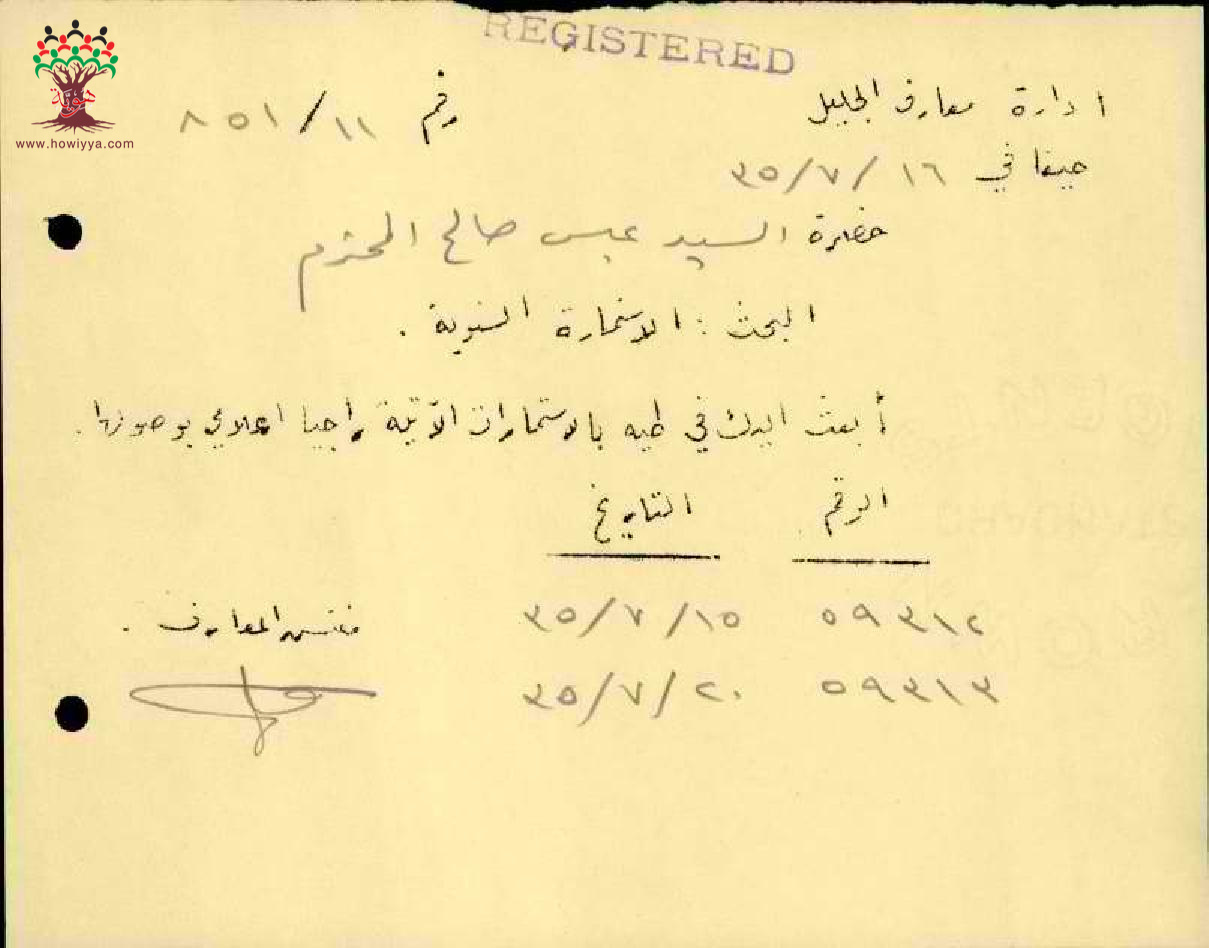 REGISTERED
هوية
www.howiyya.com
ادارة معارف الجليل
رقم ١١/٨٥١
حيفا في ١٦/٧/٣٥
حضرة السيد عبس صالح المحترم
البحث : الاستمارة السنوية .
أبعث اليك في طيه بالاستمارات الآتية راجيا اعلامي بوصولها .
الرقم التاريخ
٥٩٣١٢ ١٥/٧/٣٥
مفتش المعارف .
٥٩٣١٣ ٢٠/٧/٣٥